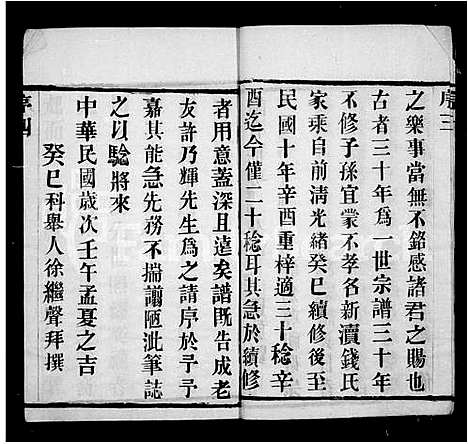 序三
之樂事當無不銘感諸君之賜也
古者三十年為一世宗譜三十年
不修子孫宜蒙不孝名新瀆錢氏
家乘自前清光緒癸巳續修後至
民國十年辛酉重梓適三十稔辛
酉迄今僅二十稔耳其急於續修
者用意蓋深且遠矣譜既告成老
友許乃輝先生為之請序於予予
嘉其能急先務不揣譾陋泚筆誌
之以騐將來
中華民國歲次壬午孟夏之吉
癸巳科舉人徐繼聲拜撰
序四